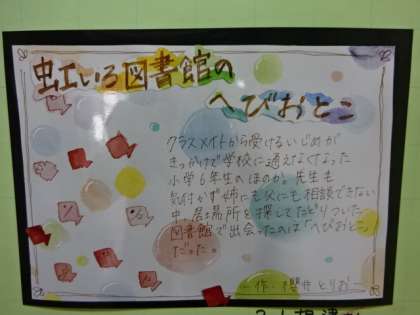 虹いろ図書館の
へびおとこ
クラスメイトから受けるいじめが
きっかけで学校に通えなくなった
小学6年生のほのか。先生も
気付かず姉にも父にも相談できない
中、居場所を探してたどりついた
図書館で出会ったのは「へびおとこ」
だった。
作・櫻井とりお